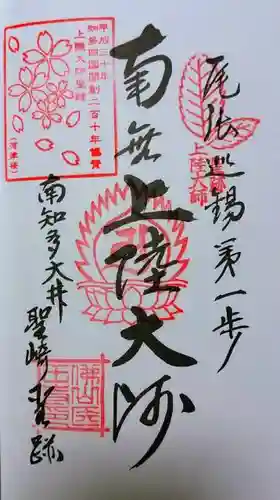 尾張巡錫第一歩
上陸大師
南無上陸大師
平成三十年
知多四国開創二百十年
上陸大師聖崎
(河津桜)
南知多大井
聖崎霊跡